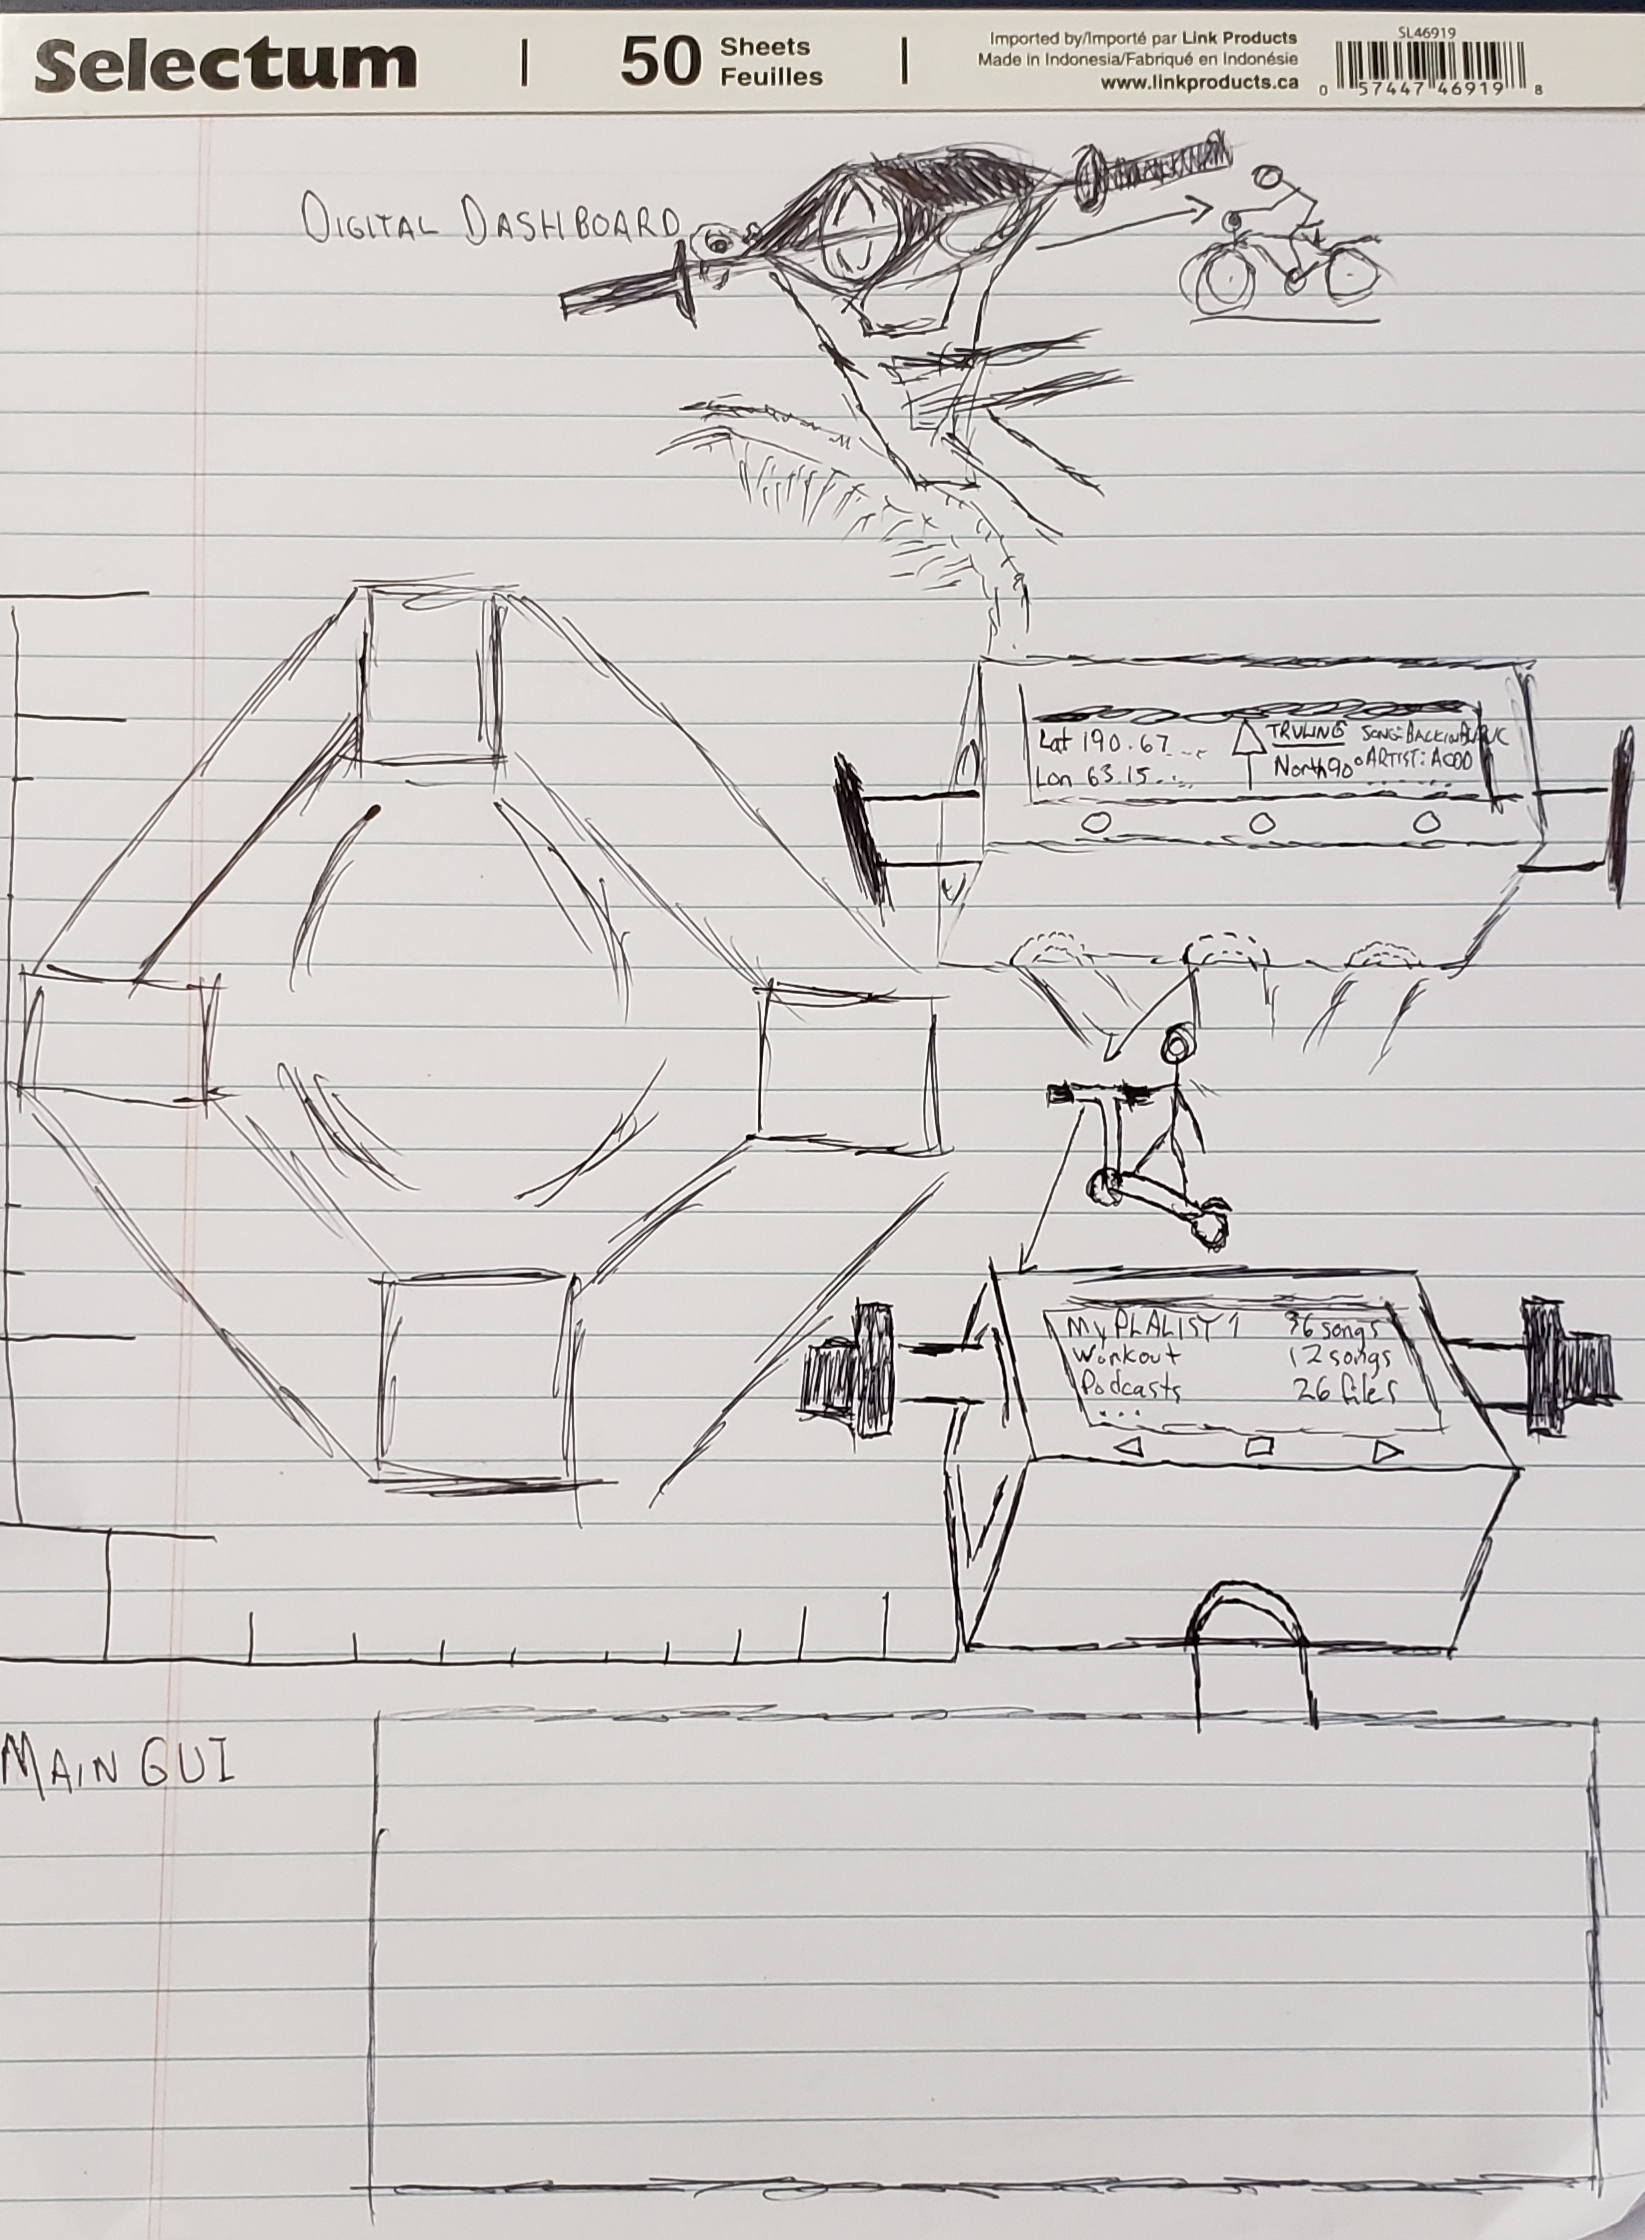 Selectum | 50 Sheets Feuilles
Imported by/Importé par Link Products
Made in Indonesia/Fabriqué en Indonésie
www.linkproducts.ca
SL46919
0 57447 46919 8
DIGITAL DASHBOARD
Lat 190.67...
Lon 63.15...
TRVLING
North 90°
SONG: BACKINBLACK
ARTIST: ACDD
......
MY PLALIST 1 36 songs
Workout 12 songs
Podcasts 26 files
...
MAIN GUI